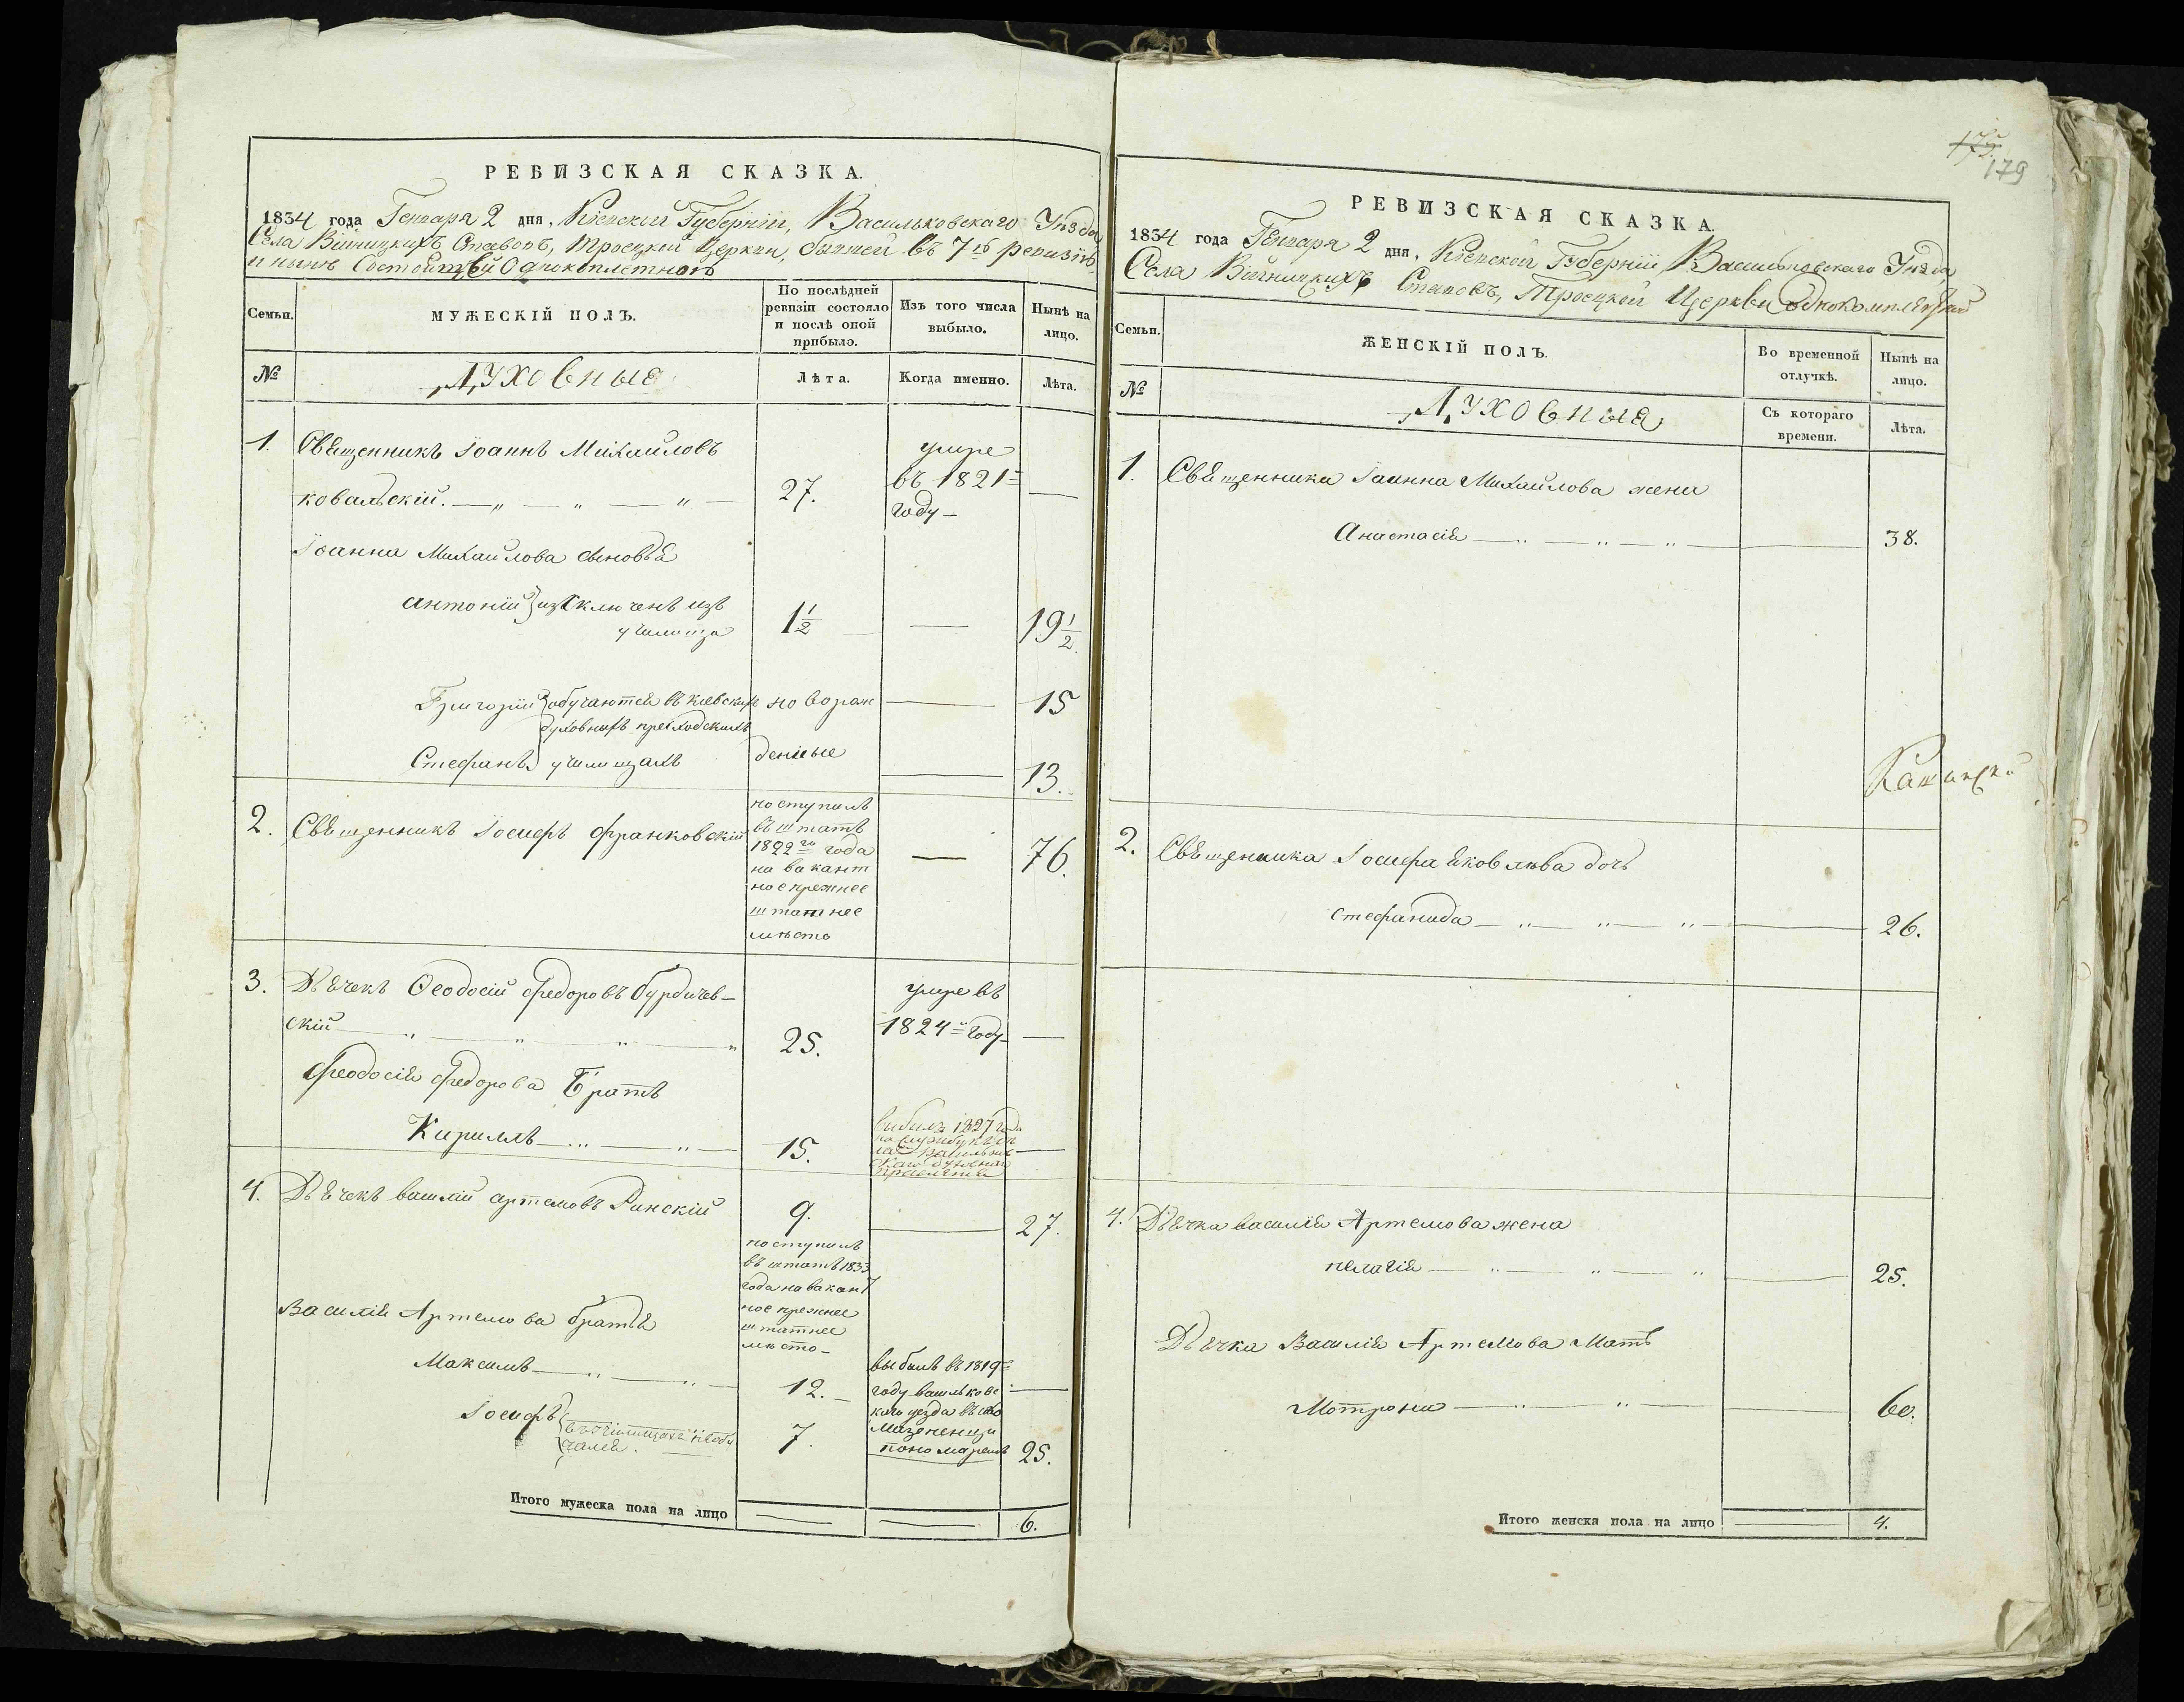 РЕВИЗСКАЯ СКАЗКА.
1834 года Генваря 2 дня, Кіевской Губерніи, Васильковскаго Уѣзда
Села Винницкихъ Ставовъ, Троецкой Церкви, бывшей въ 7й ревизіи
и нынѣ Состоящей Однокоплетною
Семьи.
МУЖЕСКІЙ ПОЛЪ.
По послѣдней ревизіи состояло и послѣ оной прибыло.
Изъ того числа выбыло.
Нынѣ на лицо.
№
Духовные
Лѣта.
Когда именно.
Лѣта.
1. Священникъ Іоаннъ Михаиловъ
ковальскій. 27. умре въ 1821м году —
Іоанна Михаилова сыновья
антоній изключенъ изъ училища 1½ — 19½.
Григорій обучаются въ киевскихъ — 15
духовныхъ училищахъ
Стефанъ — 13.
новорожденные
2. Священникъ Іосифъ франковскій
поступилъ
въ штатъ
1822го года
на вакант
ное прежнее
штатнее
мѣсто
— 76.
3. Дьячекъ Феодосій Федоровъ бурдичев-
скій 25. умре въ 1824м году —
Феодосія федорова Братъ
Кириллъ 15. выбилъ 1827 года
—
4. Дьячекъ василій артемовъ Ринскій 9. — 27.
поступилъ
въ штатъ 1833
года на вакант
ное прежнее
штатнее
мѣсто —
Василія Артемова братья
Максимъ 12. —
выбилъ въ 1819м
году васильковс
каго уезда въ село
Мазепенци
пономаремъ
Іосифъ въ училищахъ не обу
чался. 7. 25.
Итого мужеска пола на лицо — — 6.
175
179
РЕВИЗСКАЯ СКАЗКА.
1834 года Генваря 2 дня, Кіевской Губерніи, Васильковскаго Уѣзда,
Села Винницкихъ Ставовъ, Троецкой Церкви однокомплетной
Семьи.
ЖЕНСКІЙ ПОЛЪ.
Во временной отлучкѣ.
Нынѣ на лицо.
№
Духовные
Съ котораго времени.
Лѣта.
1. Священника Іоанна Михаилова жена
Анастасія — 38.
2. Священника Іосифа Яковлева дочь
стефанида — 26.
4. Дьячка василія Артемова жена
пелагія — 25.
Дьячка Василія Артемова Мать
Мотрона — 60.
Итого женска пола на лицо — 4.